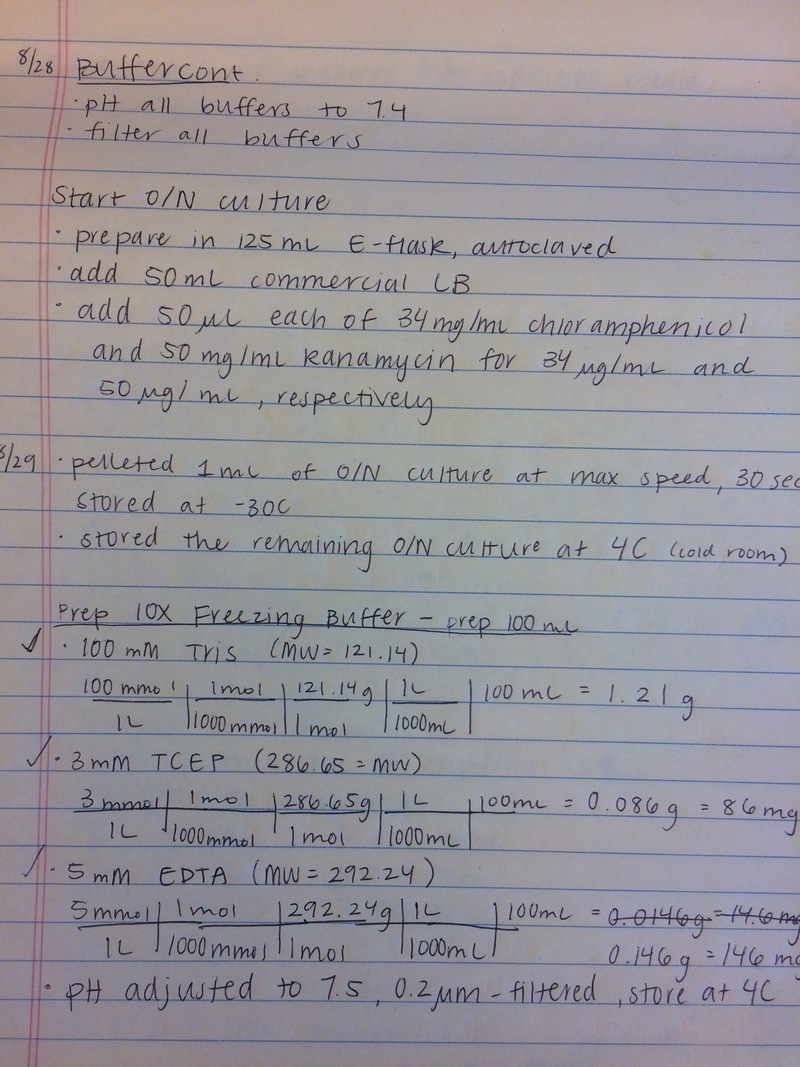 8/28 Buffer cont.
· pH all buffers to 7.4
· filter all buffers
Start O/N culture
· prepare in 125 mL E-flask, autoclaved
· add 50 mL commercial LB
· add 50 µL each of 34 mg/mL chloramphenicol
and 50 mg/mL kanamycin for 34 µg/mL and
50 µg/mL, respectively
8/29 · pelleted 1 mL of O/N culture at max speed, 30 sec
stored at -30C
· stored the remaining O/N culture at 4C (cold room)
Prep 10X Freezing Buffer - prep 100 mL
✓ · 100 mM Tris (MW = 121.14)
100 mmol | 1 mol | 121.14 g | 1L | 100 mL = 1.21 g
1L | 1000 mmol | 1 mol | 1000 mL
✓ · 3 mM TCEP (286.65 = MW)
3 mmol | 1 mol | 286.65 g | 1L | 100 mL = 0.086 g = 86 mg
1L | 1000 mmol | 1 mol | 1000 mL
✓ · 5 mM EDTA (MW = 292.24)
5 mmol | 1 mol | 292.24 g | 1L | 100 mL = 0.0146 g = 14.6 mg
1L | 1000 mmol | 1 mol | 1000 mL 0.146 g = 146 mg
· pH adjusted to 7.5, 0.2 µm - filtered, store at 4C